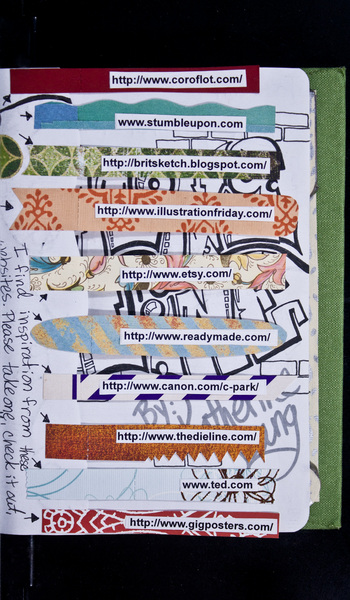 http://www.coroflot.com/
www.stumbleupon.com
http://britsketch.blogspot.com/
http://www.illustrationfriday.com/
http://www.etsy.com/
http://www.readymade.com/
http://www.canon.com/c-park/
http://www.thedieline.com/
www.ted.com
http://www.gigposters.com/
I find inspiration from these
websites. Please take one, check it out
By: